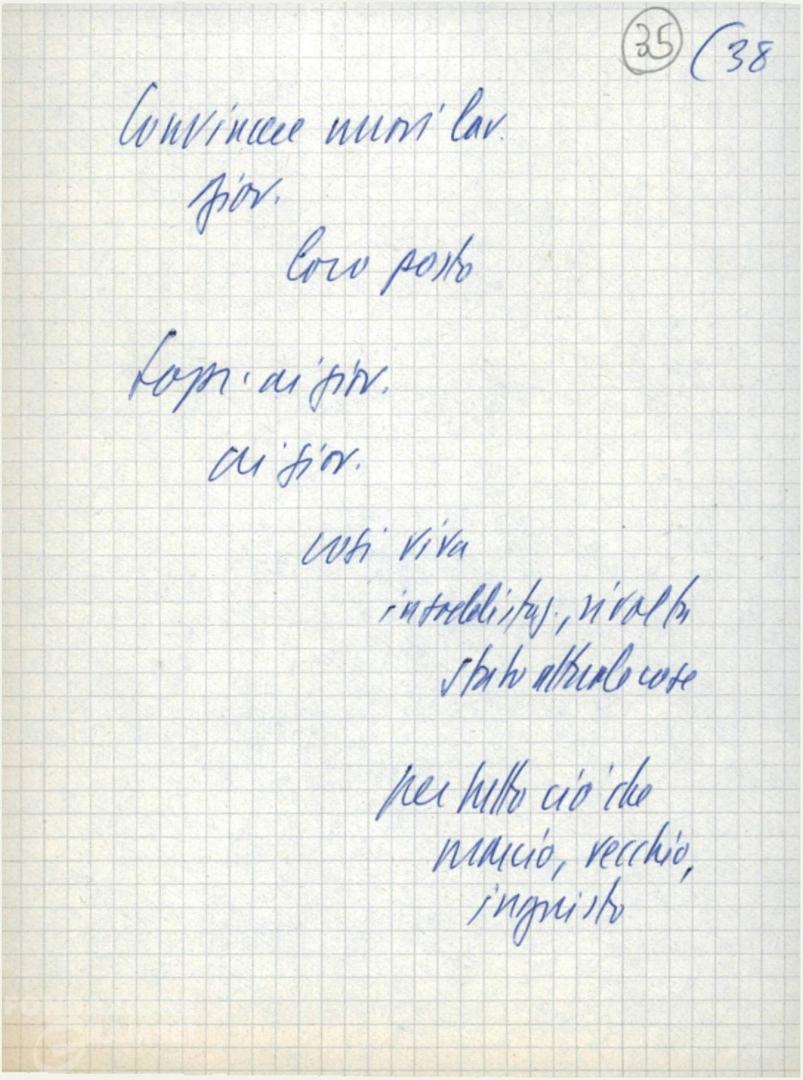 35 (38
Convincere nuovi lav.
giov.
loro posto
Sopr. ai giov.
ai giov.
così viva
insoddisfaz., rivolta
stato attuale cose
per tutto ciò che
marcio, vecchio,
ingiusto